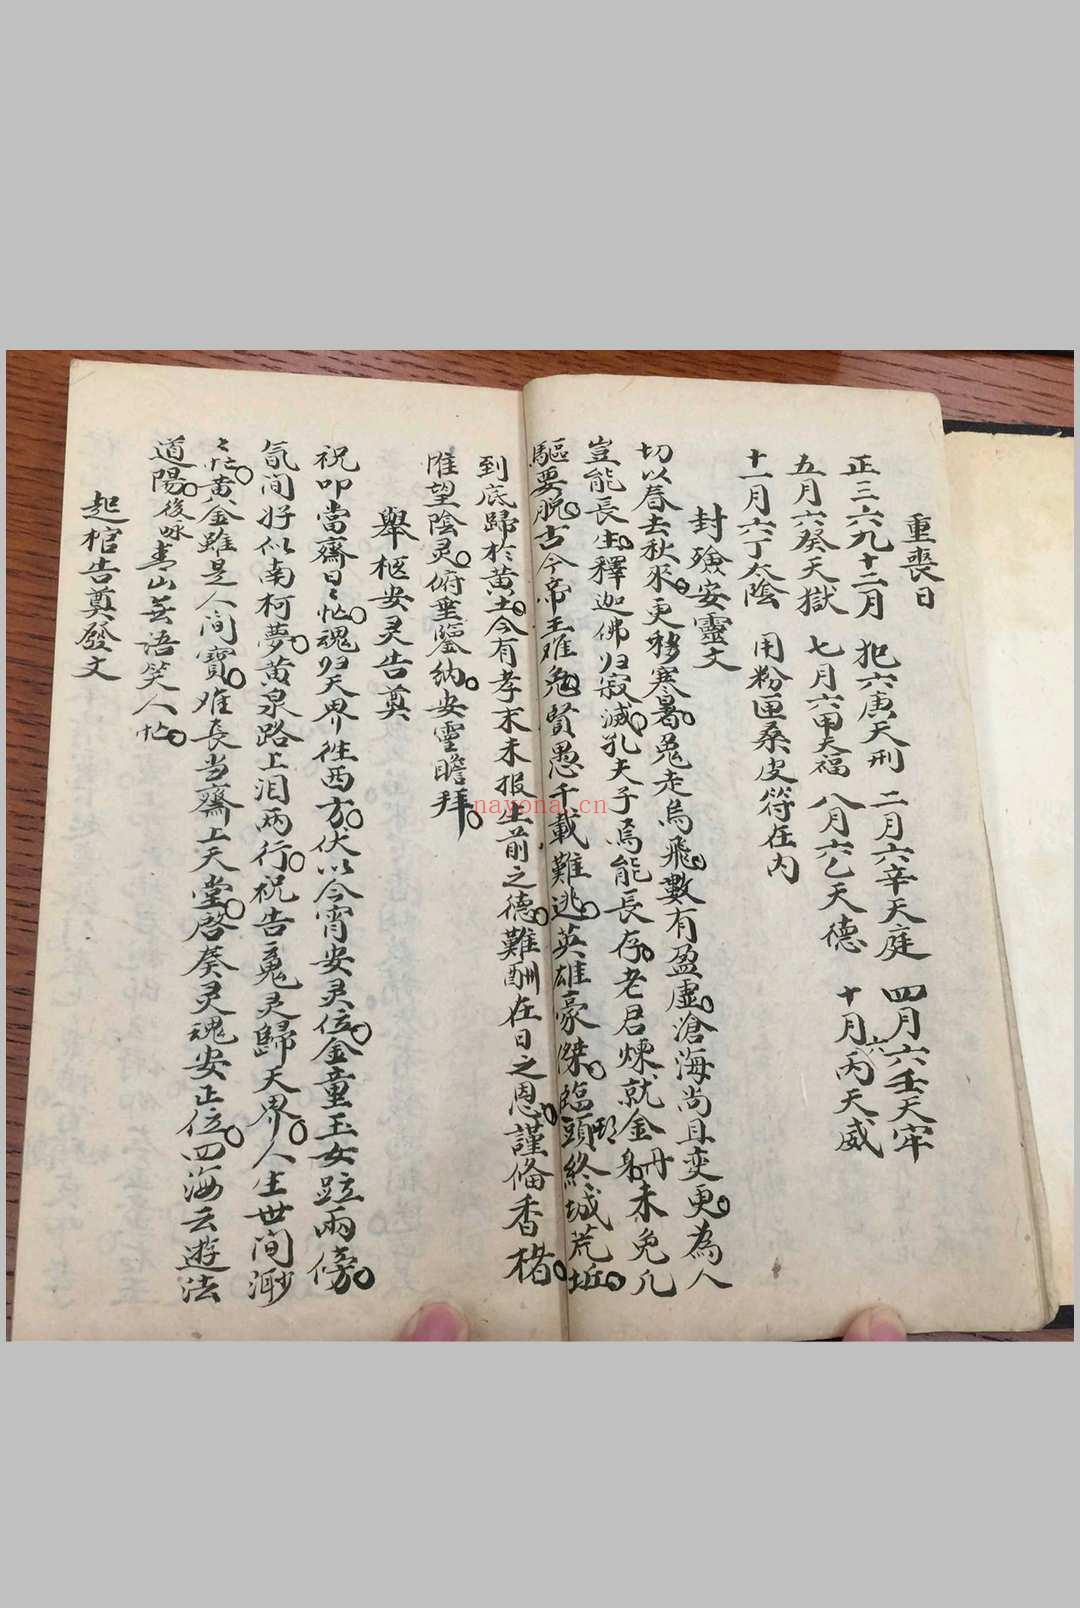 重喪日
正三六九十二月 犯六庚天刑 二月六辛天庭 四月六壬天牢
五月六癸天獄 七月六甲天福 八月六乙天德 十月六丙天威
十一月六丁太陰 用粉匣桑皮符在內
封殮安靈文
切以春去秋來更移寒暑兔走烏飛數有盈虛滄海尚且变更為人
豈能長生釋迦佛归寂滅孔夫子焉能長存老君煉就金丹未免凡
軀要脫古今帝王难免賢愚千載難逃英雄豪傑臨頭終城荒坵
到底歸於黃土今有孝末未报生前之德難酬在日之恩謹俻香楮
惟望陰灵俯垂鑒納安靈瞻拜
舉柩安灵告奠
祝叩當齋日〻忙魂归天界徃西方伏以今宵安灵位金童玉女跕兩傍
氤间好似南柯夢黃泉路上泪兩行祝告䰟灵歸天界人生世间渺
〻忙黃金雖是人间寶难長当齋上天堂啓奏灵魂安正位四海云遊法
道陽後咏青山芸语笑人忙
起棺告奠發文
nayona.cn